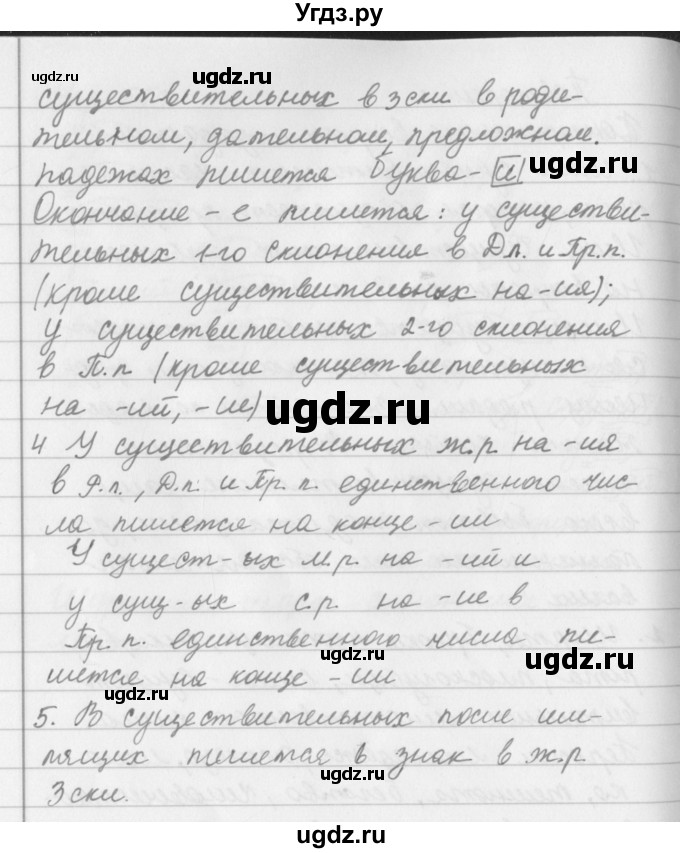 Угдз.ру
существительных в 3 скл в роди-
тельном, дательном, предложном.
падежах пишется буква - и
Окончание - е пишется: у существи-
тельных 1-го склонения в Д.п. и Пр.п.
(кроме существительных на -ия);
у существительных 2-го склонения
в П.п (кроме существительных
на -ий, -ие)
4 У существительных ж.р на -ия
в Р.п., Д.п. и Пр.п. единственного чис-
ла пишется на конце -ии
У сущест-ых м.р. на -ий и
у сущ-ых с.р. на -ие в
Пр.п. единственного числа пи-
шется на конце -ии
5. В существительных после ши-
пящих пишется ь знак в ж.р
3 скл.
ugdz.ru
ugdz.ru
ugdz.ru
ugdz.ru
ugdz.ru
ugdz.ru
ugdz.ru
ugdz.ru
ugdz.ru
ugdz.ru
ugdz.ru
ugdz.ru
ugdz.ru